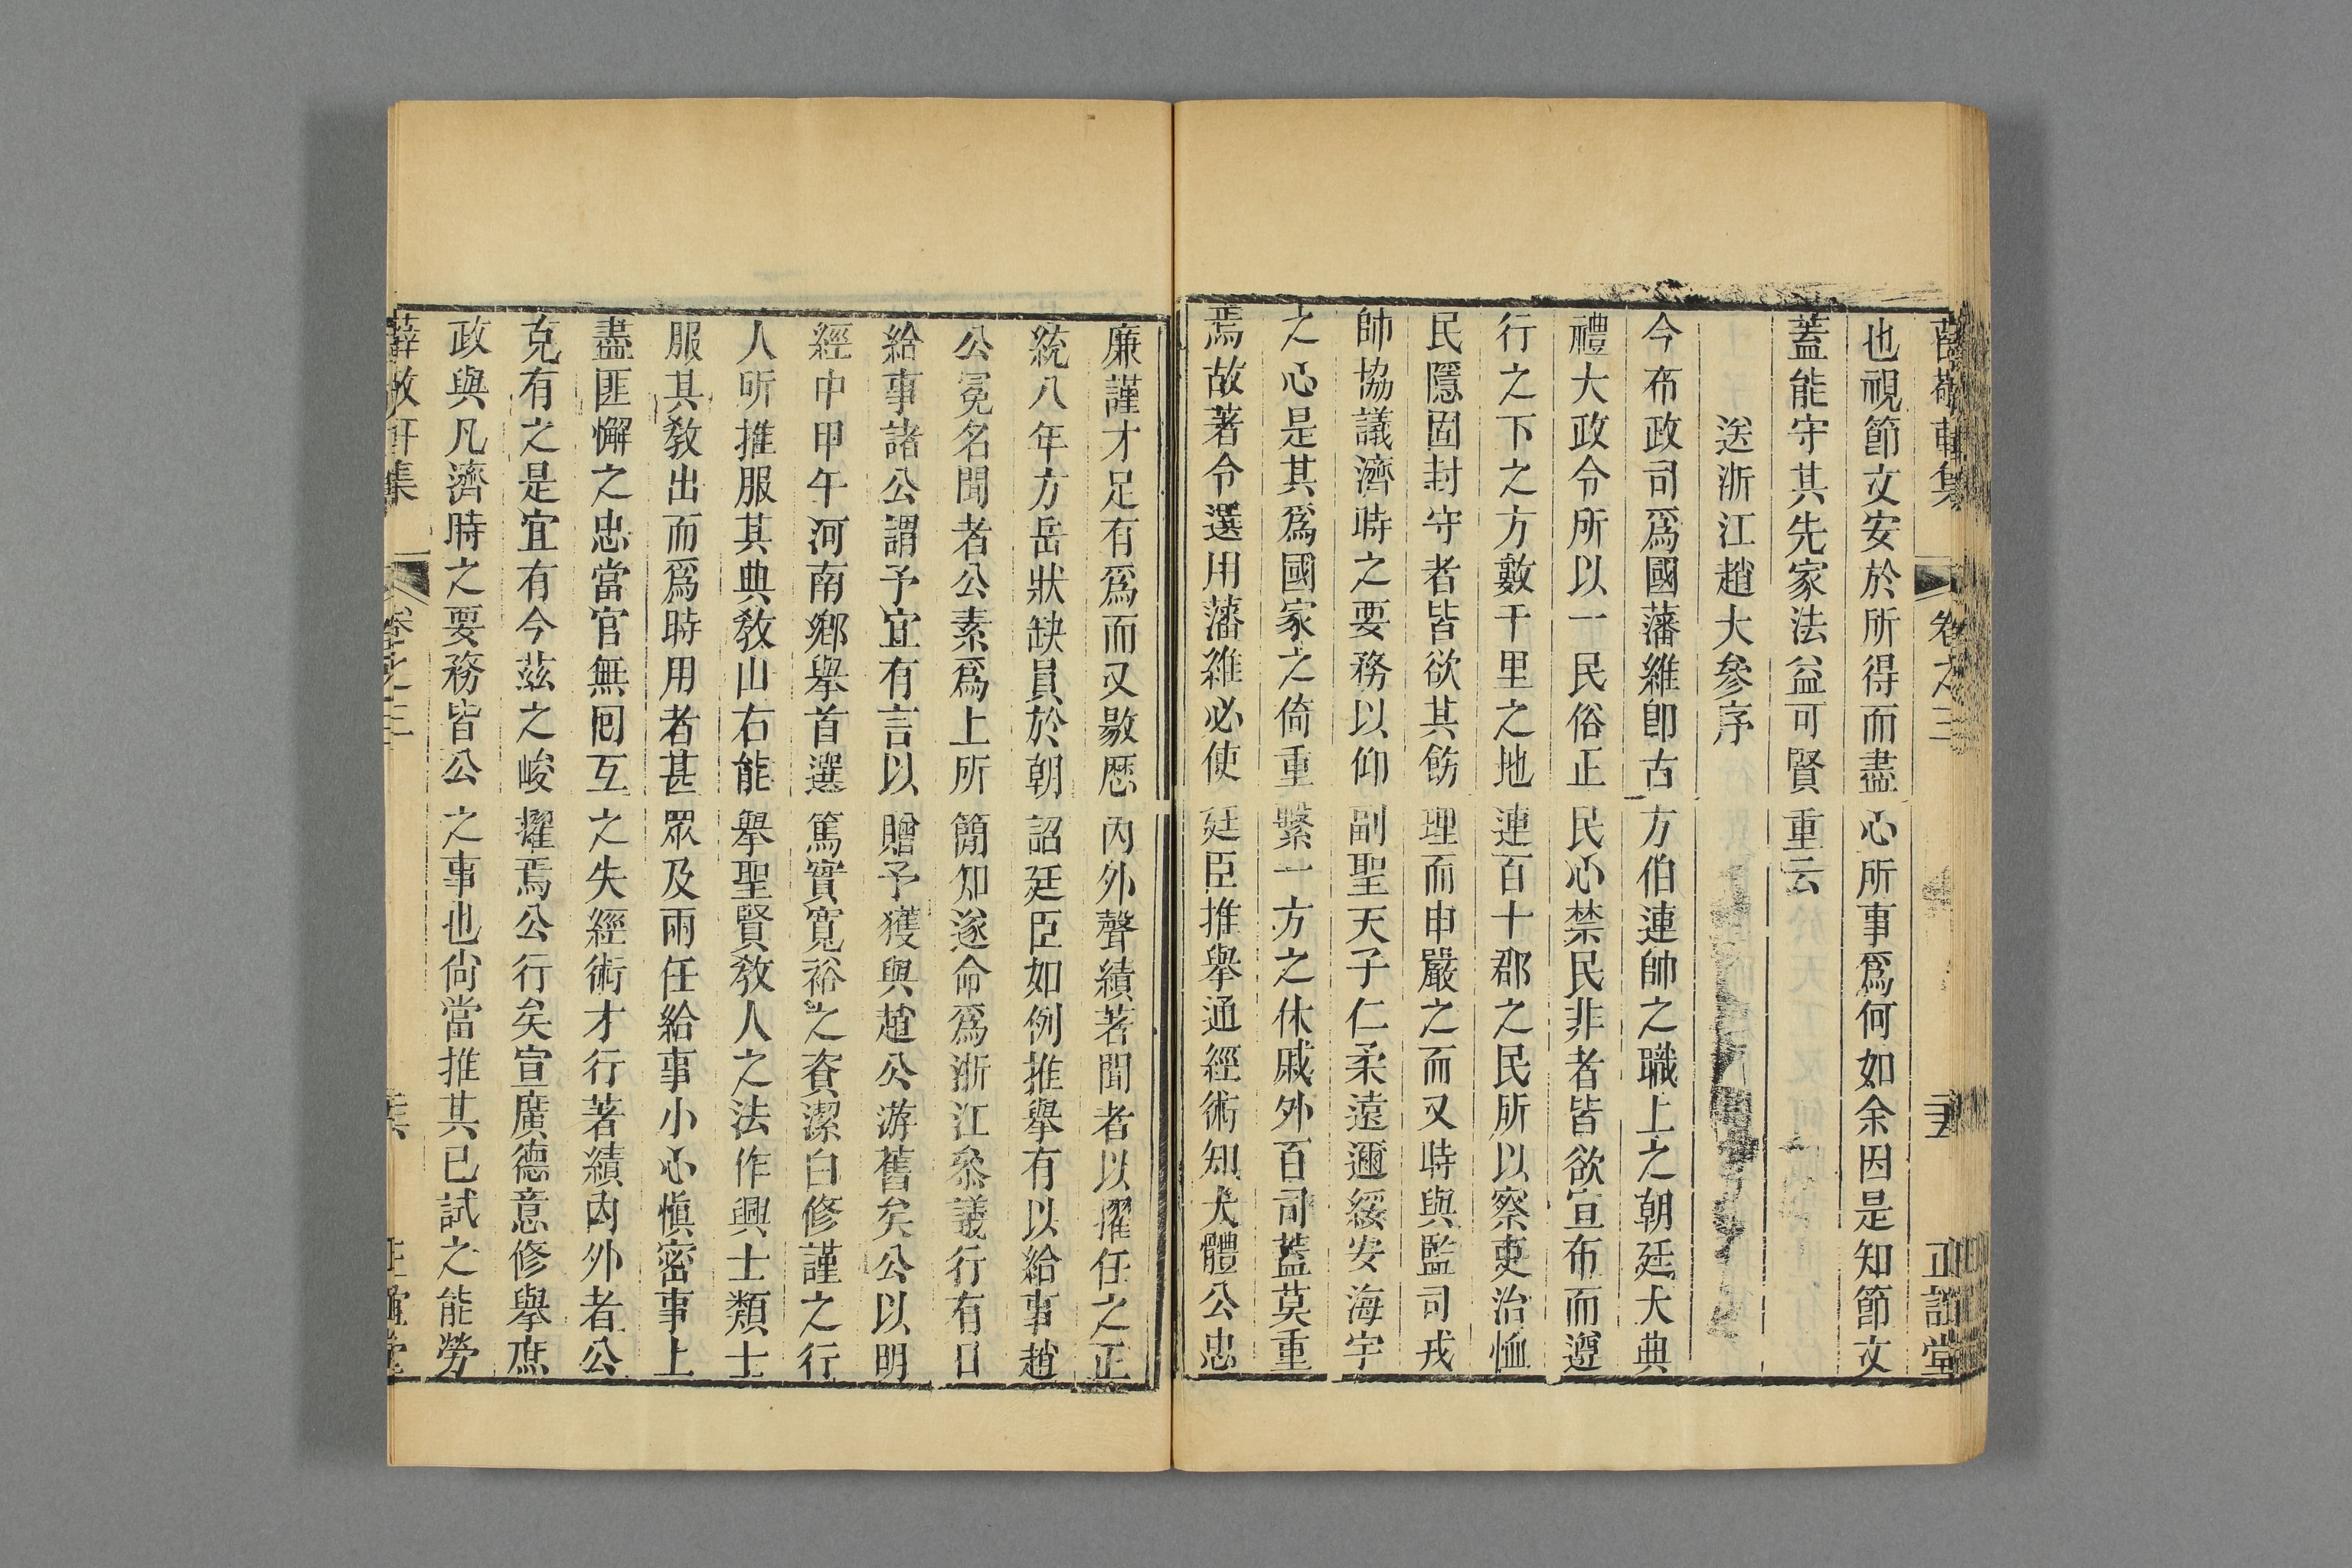 薛敬軒集 卷之三 正誼堂
也視節文安於所得而盡心所事爲何如余因是知節文
蓋能守其先家法益可賢重云
送浙江趙大參序
今布政司爲國藩維卽古方伯連帥之職上之朝廷大典
禮大政令所以一民俗正民心禁民非者皆欲宣布而遵
行之下之方數千里之地連百十郡之民所以察吏治恤
民隱固封守者皆欲其飭理而申嚴之而又時與監司戎
帥協議濟時之要務以仰副聖天子仁柔遠邇綏安海宇
之心是其爲國家之倚重繫一方之休戚外百司蓋莫重
焉故著令選用藩維必使廷臣推舉通經術知大體公忠
廉謹才足有爲而又敭歷內外聲績著聞者以擢任之正
統八年方岳狀缺員於朝詔廷臣如例推舉有以給事趙
公冕名聞者公素爲上所簡知遂命爲浙江叅議行有日
給事諸公謂予宜有言以贈予獲與趙公游舊矣公以明
經中甲午河南鄉舉首選篤實寬裕之資潔白修謹之行
人所推服其典敎山右能舉聖賢敎人之法作興士類士
服其敎出而爲時用者甚眾及兩任給事小心愼密事上
盡匪懈之忠當官無囘互之失經術才行著績內外者公
克有之是宜有今茲之峻擢焉公行矣宣廣德意修舉庶
政與凡濟時之要務皆公之事也尙當推其已試之能勞
薛敬軒集 卷之三 正誼堂